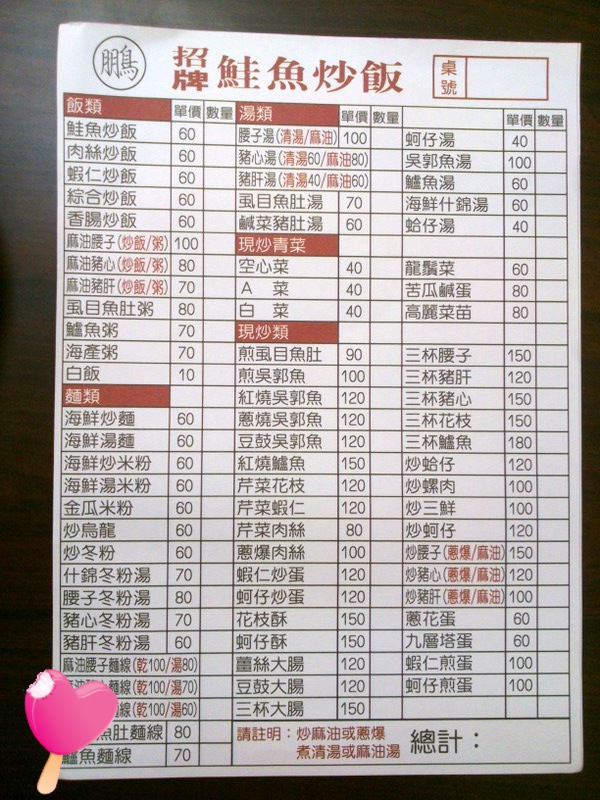 鵬
招牌鮭魚炒飯
桌號
飯類 單價 數量
鮭魚炒飯 60
肉絲炒飯 60
蝦仁炒飯 60
綜合炒飯 60
香腸炒飯 60
麻油腰子(炒飯/粥) 100
麻油豬心(炒飯/粥) 80
麻油豬肝(炒飯/粥) 70
虱目魚肚粥 80
鱸魚粥 70
海產粥 70
白飯 10
麵類
海鮮炒麵 60
海鮮湯麵 60
海鮮炒米粉 60
海鮮湯米粉 60
金瓜米粉 60
炒烏龍 60
炒冬粉 60
什錦冬粉湯 70
腰子冬粉湯 80
豬心冬粉湯 70
豬肝冬粉湯 60
麻油腰子麵線(乾100/湯80)
麵線(乾100/湯70)
麵線(乾100/湯60)
魚肚麵線 80
鱸魚麵線 70
湯類 單價 數量
腰子湯(清湯/麻油) 100
豬心湯(清湯60/麻油80)
豬肝湯(清湯40/麻油60)
虱目魚肚湯 70
鹹菜豬肚湯 60
現炒青菜
空心菜 40
A 菜 40
白 菜 40
現炒類
煎虱目魚肚 90
煎吳郭魚 100
紅燒吳郭魚 120
蔥燒吳郭魚 120
豆鼓吳郭魚 120
紅燒鱸魚 150
芹菜花枝 120
芹菜蝦仁 120
芹菜肉絲 80
蔥爆肉絲 100
蝦仁炒蛋 120
蚵仔炒蛋 120
花枝酥 150
蚵仔酥 150
薑絲大腸 120
豆鼓大腸 120
三杯大腸 150
單價 數量
蚵仔湯 40
吳郭魚湯 100
鱸魚湯 60
海鮮什錦湯 60
蛤仔湯 40
龍鬚菜 60
苦瓜鹹蛋 80
高麗菜苗 80
三杯腰子 150
三杯豬肝 120
三杯豬心 150
三杯花枝 150
三杯鱸魚 180
炒蛤仔 120
炒螺肉 100
炒三鮮 100
炒蚵仔 120
炒腰子(蔥爆/麻油) 150
炒豬心(蔥爆/麻油) 120
炒豬肝(蔥爆/麻油) 100
蔥花蛋 60
九層塔蛋 60
蝦仁煎蛋 100
蚵仔煎蛋 100
請註明：炒麻油或蔥爆
煮清湯或麻油湯
總計：